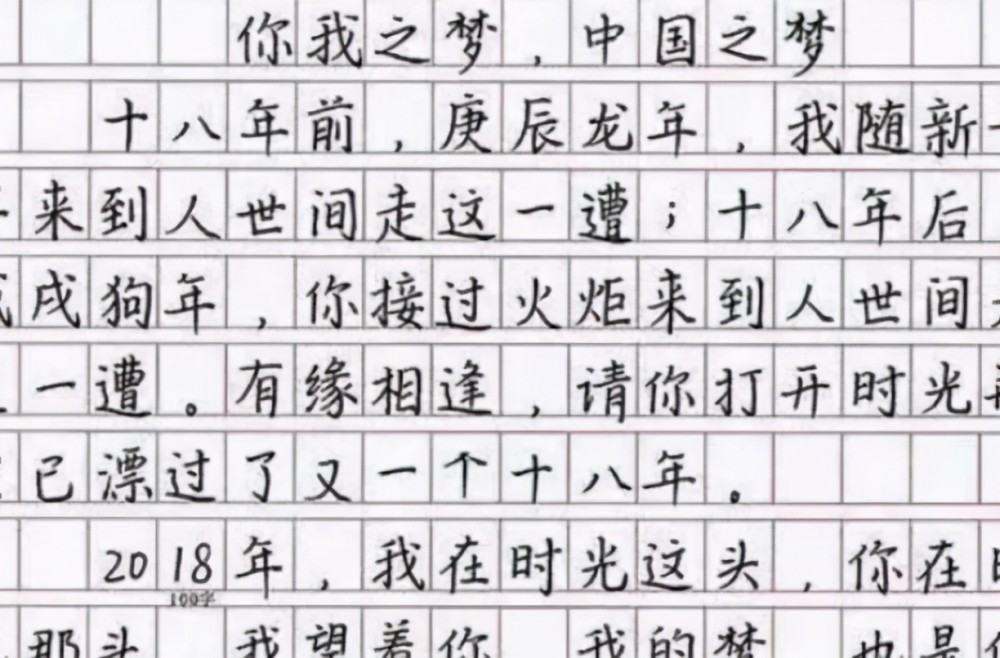 你我之梦，中国之梦
十八年前，庚辰龙年，我随新
来到人世间走这一遭；十八年后
戌狗年，你接过火炬来到人世间
一遭。有缘相逢，请你打开时光
已漂过了又一个十八年。
2018年，我在时光这头，你在
100字
那头 我望着你 我的梦 也是